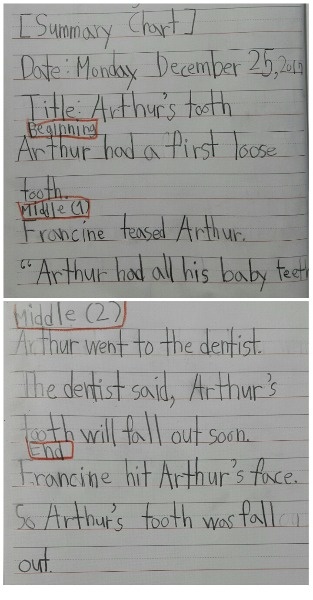 [Summary Chart]
Date: Monday December 25,
Title: Arthur's tooth
Beginning
Arthur had a first loose
tooth.
Middle (1)
Francine teased Arthur.
“Arthur had all his baby teeth
Middle (2)
Arthur went to the dentist.
The dentist said, Arthur's
tooth will fall out soon.
End
Francine hit Arthur's face.
So Arthur's tooth was fall
out.